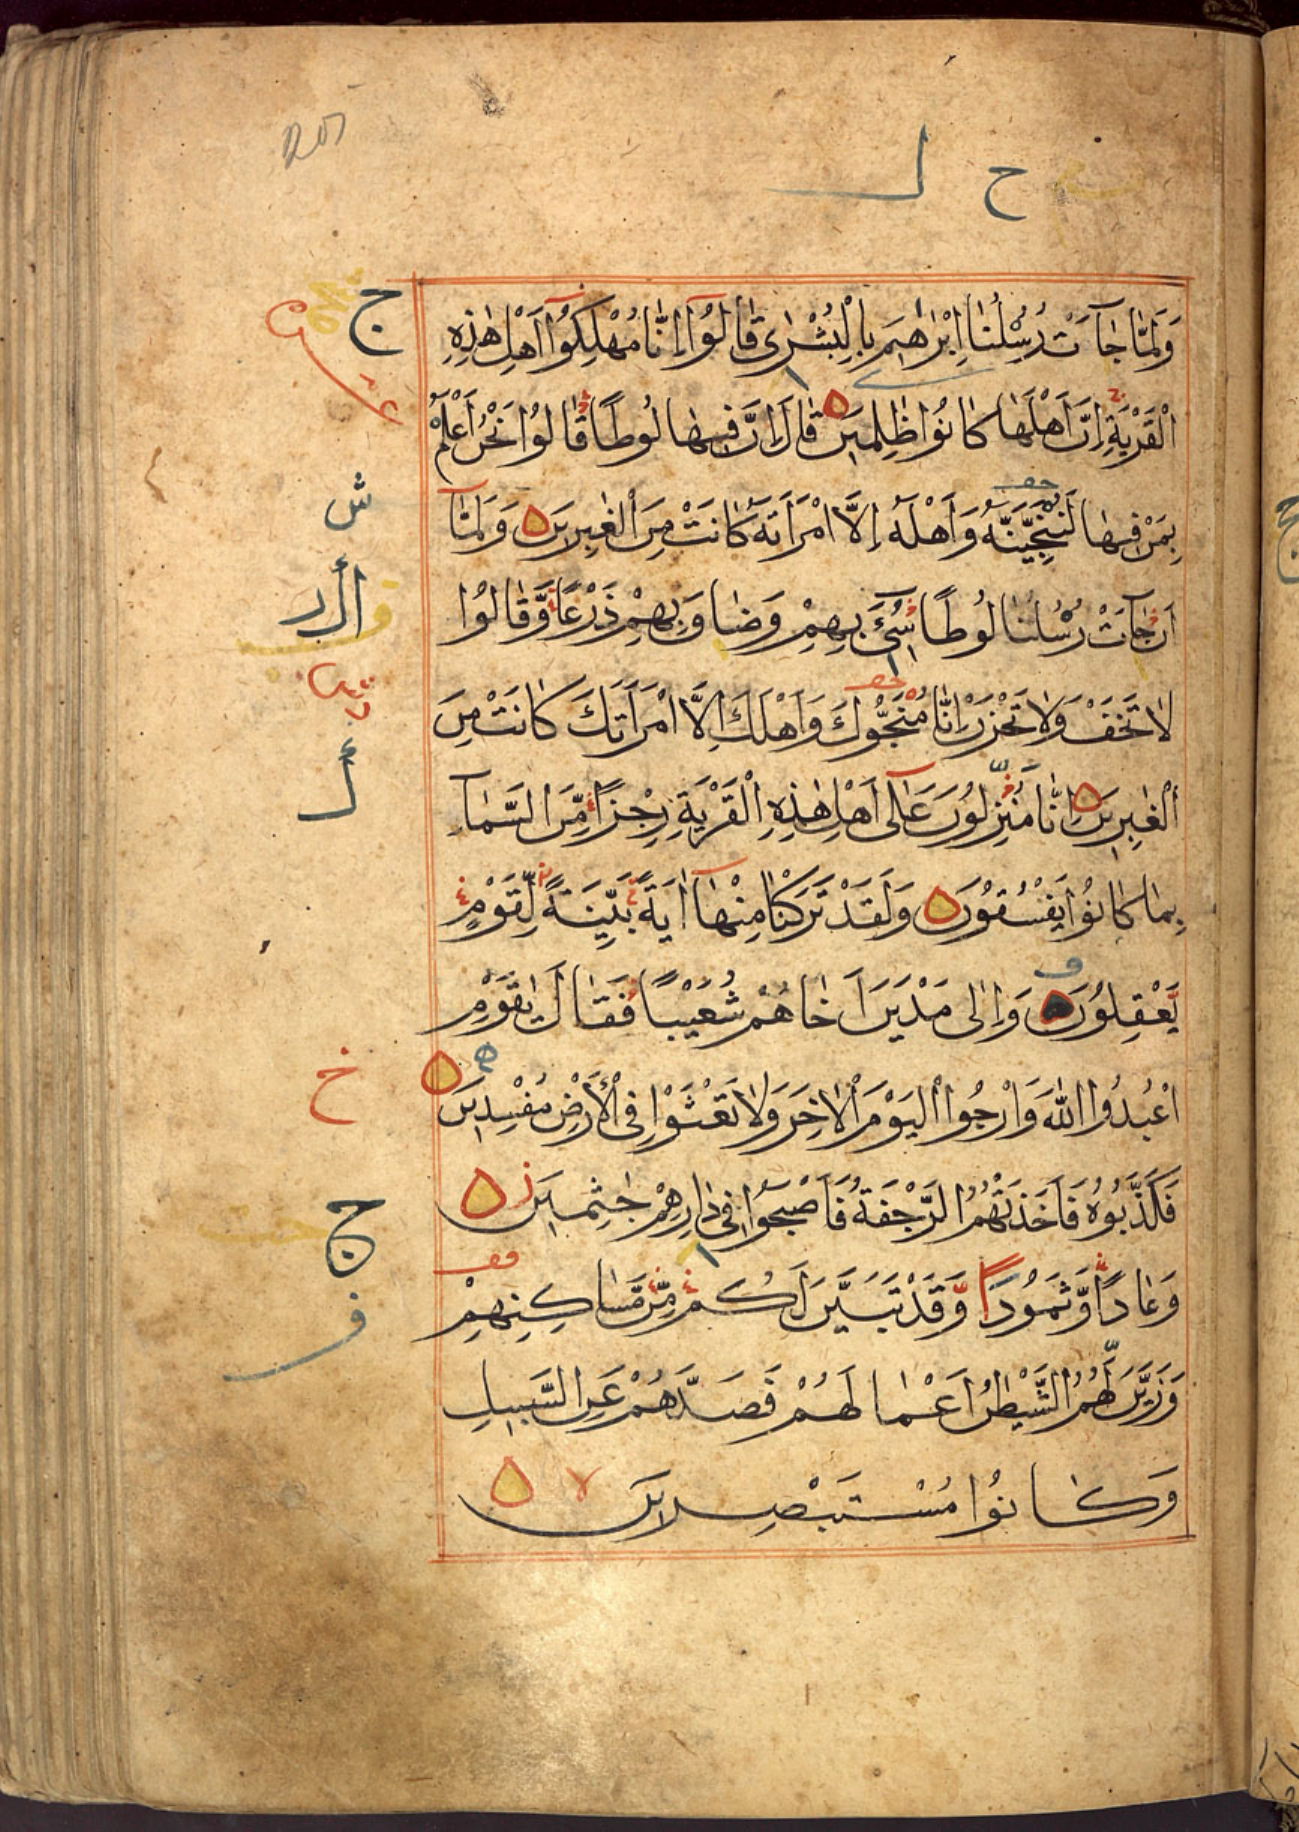 ح ل
وَلَمَّا جَآءَتْ رُسُلُنَا اِبْرٰهِيمَ بِالْبُشْرٰى قَالُوٓا اِنَّا مُهْلِكُوٓا اَهْلِ هٰذِهِ
الْقَرْيَةِ اِنَّ اَهْلَهَا كَانُوْا ظٰلِمِيْنَ قَالَ اِنَّ فِيهَا لُوطًا قَالُوْا نَحْنُ اَعْلَمُ
بِمَنْ فِيهَا لَنُنَجِّيَنَّهٗ وَاَهْلَهٗٓ اِلَّا امْرَاَتَهٗ كَانَتْ مِنَ الْغٰبِرِيْنَ وَلَمَّآ
اَنْ جَآءَتْ رُسُلُنَا لُوطًا سِيْٓءَ بِهِمْ وَضَاقَ بِهِمْ ذَرْعًا وَّقَالُوْا
لَا تَخَفْ وَلَا تَحْزَنْ اِنَّا مُنَجُّوكَ وَاَهْلَكَ اِلَّا امْرَاَتَكَ كَانَتْ مِنَ
الْغٰبِرِيْنَ اِنَّا مُنْزِلُوْنَ عَلٰٓى اَهْلِ هٰذِهِ الْقَرْيَةِ رِجْزًا مِّنَ السَّمَآءِ
بِمَا كَانُوْا يَفْسُقُوْنَ وَلَقَدْ تَرَكْنَا مِنْهَآ اٰيَةً بَيِّنَةً لِّقَوْمٍ
يَّعْقِلُوْنَ وَاِلٰى مَدْيَنَ اَخَاهُمْ شُعَيْبًا فَقَالَ يٰقَوْمِ
اعْبُدُوا اللّٰهَ وَارْجُوا الْيَوْمَ الْاٰخِرَ وَلَا تَعْثَوْا فِى الْاَرْضِ مُفْسِدِيْنَ
فَكَذَّبُوْهُ فَاَخَذَتْهُمُ الرَّجْفَةُ فَاَصْبَحُوْا فِى دَارِهِمْ جٰثِمِيْنَ
وَعَادًا وَّثَمُوْدَا۟ وَقَدْ تَبَيَّنَ لَكُمْ مِّنْ مَّسَاكِنِهِمْ
وَزَيَّنَ لَهُمُ الشَّيْطٰنُ اَعْمَالَهُمْ فَصَدَّهُمْ عَنِ السَّبِيْلِ
وَكَانُوْا مُسْتَبْصِرِيْنَ
ج
ش
خ
ج
ف